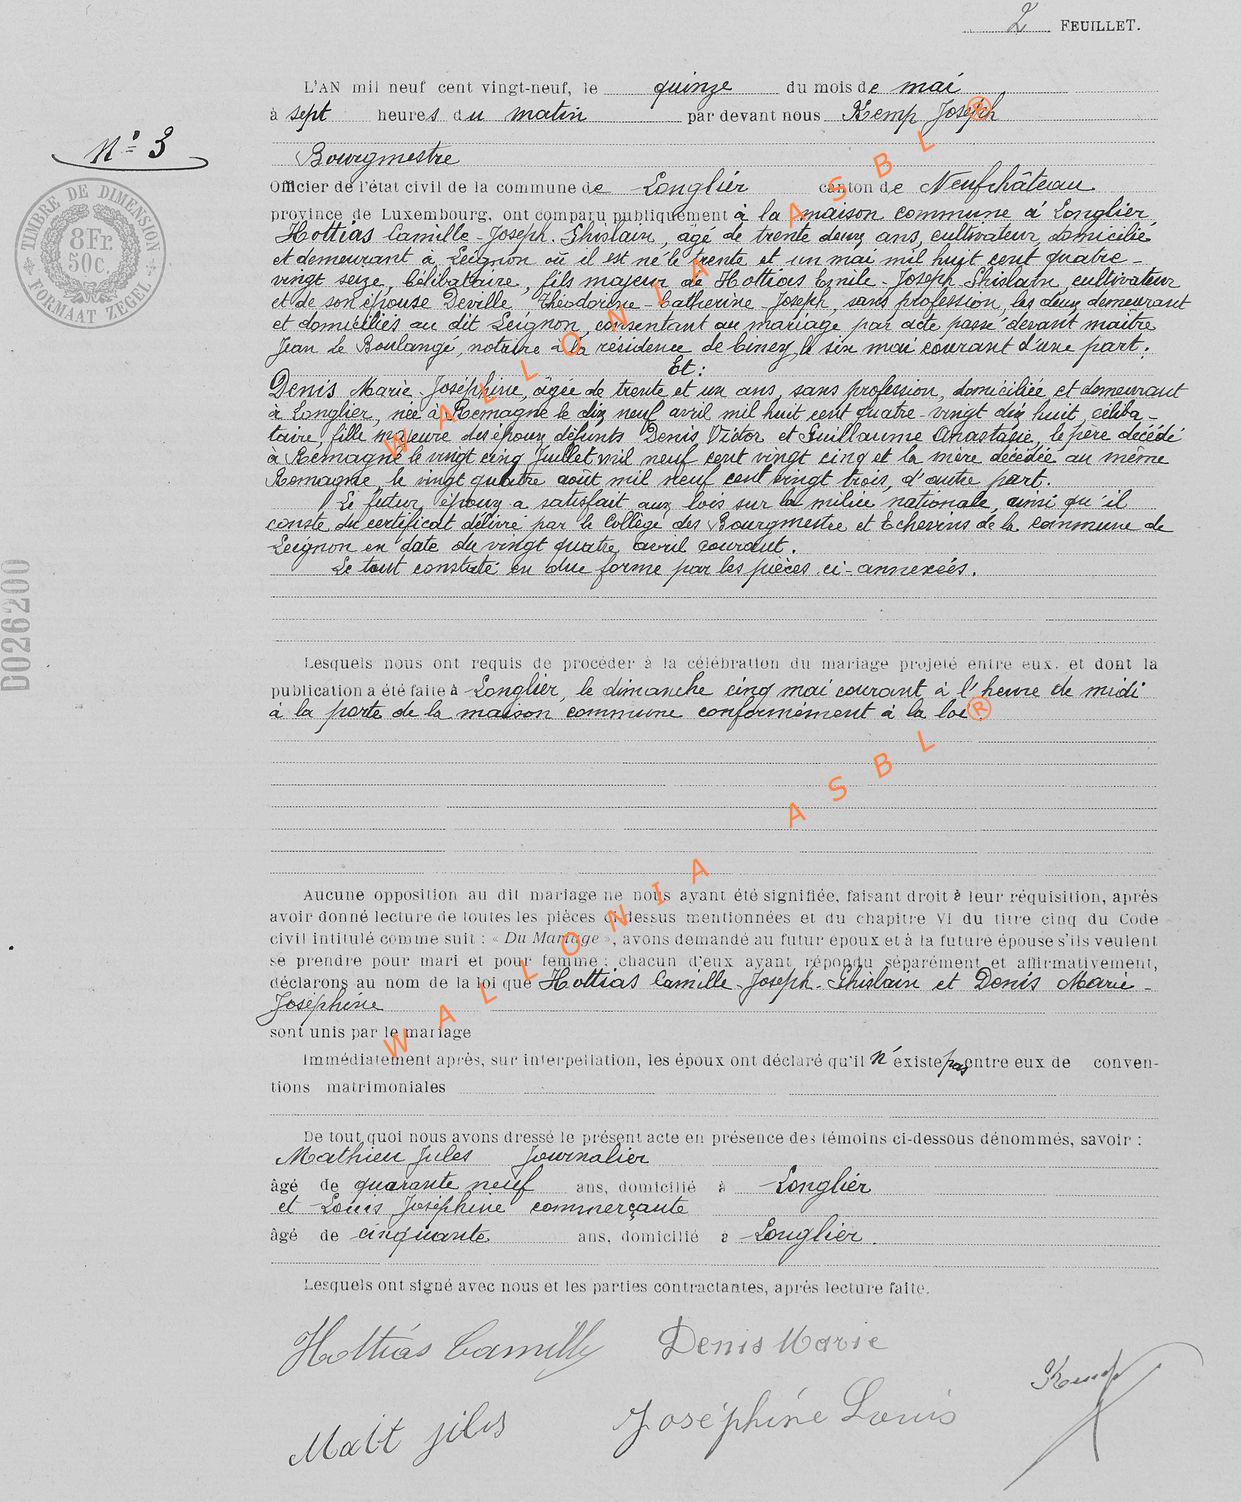 2 FEUILLET.
L'AN mil neuf cent vingt-neuf, le quinze du mois de mai
à sept heures du matin par devant nous Kemp Joseph
Nº 3
Bourgmestre
Officier de l'état civil de la commune de Longlier canton de Neufchâteau
province de Luxembourg, ont comparu publiquement à la maison commune à Longlier
Hottias Camille-Joseph-Ghislain, âgé de trente deux ans, cultivateur, domicilié
et demeurant à Leignon où il est né le trente et un mai mil huit cent quatre-
vingt seize, célibataire, fils majeur de Hottias Emile-Joseph Ghislain, cultivateur
et de son épouse Deville, Théodorine-Catherine-Joseph, sans profession, les deux demeurant
et domiciliés au dit Leignon, consentant au mariage par acte passé devant maître
Jean Le Boulangé, notaire à la résidence de Ciney le six mai courant d'une part;
Et:
Denis Marie-Joséphine, âgée de trente et un ans, sans profession, domiciliée et demeurant
à Longlier, née à Remagne le dix neuf avril mil huit cent quatre-vingt dix huit, céliba-
taire, fille majeure des époux défunts Denis Victor et Guillaume Anastasie, le père décédé
à Remagne le vingt cinq Juillet mil neuf cent vingt cinq et la mère décédée au même
Remagne, le vingt quatre août mil neuf cent vingt trois, d'autre part.
Le futur époux a satisfait aux lois sur la milice nationale, ainsi qu'il
conste du certificat délivré par le Collège des Bourgmestre et Echevins de la commune de
Leignon en date du vingt quatre avril courant.
Le tout constaté en due forme par les pièces ci-annexées.
TIMBRE DE DIMENSION
8 Fr.
50c.
FORMAAT ZEGEL
D026200
Lesquels nous ont requis de procéder à la célébration du mariage projeté entre eux, et dont la
publication a été faite à Longlier, le dimanche cinq mai courant à l'heure de midi
à la porte de la maison commune conformément à la loi.
Aucune opposition au dit mariage ne nous ayant été signifiée, faisant droit à leur réquisition, après
avoir donné lecture de toutes les pièces ci-dessus mentionnées et du chapitre VI du titre cinq du Code
civil intitulé comme suit : « Du Mariage », avons demandé au futur époux et à la future épouse s'ils veulent
se prendre pour mari et pour femme ; chacun d'eux ayant répondu séparément et affirmativement,
déclarons au nom de la loi que Hottias Camille-Joseph-Ghislain et Denis Marie-
Joséphine
sont unis par le mariage
Immédiatement après, sur interpellation, les époux ont déclaré qu'il n'existe pas entre eux de conven-
tions matrimoniales
De tout quoi nous avons dressé le présent acte en présence des témoins ci-dessous dénommés, savoir :
Mathieu Jules Journalier
âgé de quarante neuf ans, domicilié à Longlier
et Louis Joséphine commerçante
âgé de cinquante ans, domicilié à Longlier.
Lesquels ont signé avec nous et les parties contractantes, après lecture faite.
Hottias Camille Denis Marie
Kemp
Matt jills Joséphine Louis
WALLONIA ASBL ®
WALLONIA ASBL ®